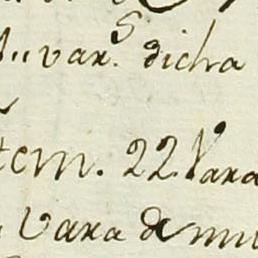 var.ˢ dicha
Item. 22 Vara
Vara de mu